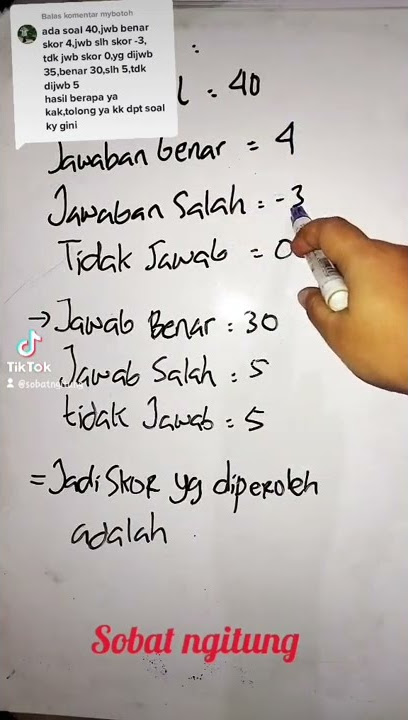 Balas komentar mybotoh
ada soal 40,jwb benar
skor 4,jwb slh skor -3,
tdk jwb skor 0,yg dijwb
35,benar 30,slh 5,tdk
dijwb 5
hasil berapa ya
kak,tolong ya kk dpt soal
ky gini
:
l : 40
Jawaban benar = 4
Jawaban Salah = -3
Tidak Jawab = 0
→ Jawab Benar : 30
Jawab Salah : 5
tidak Jawab = 5
= Jadi Skor yg diperoleh
adalah
TikTok
@sobatngitung
Sobat ngitung